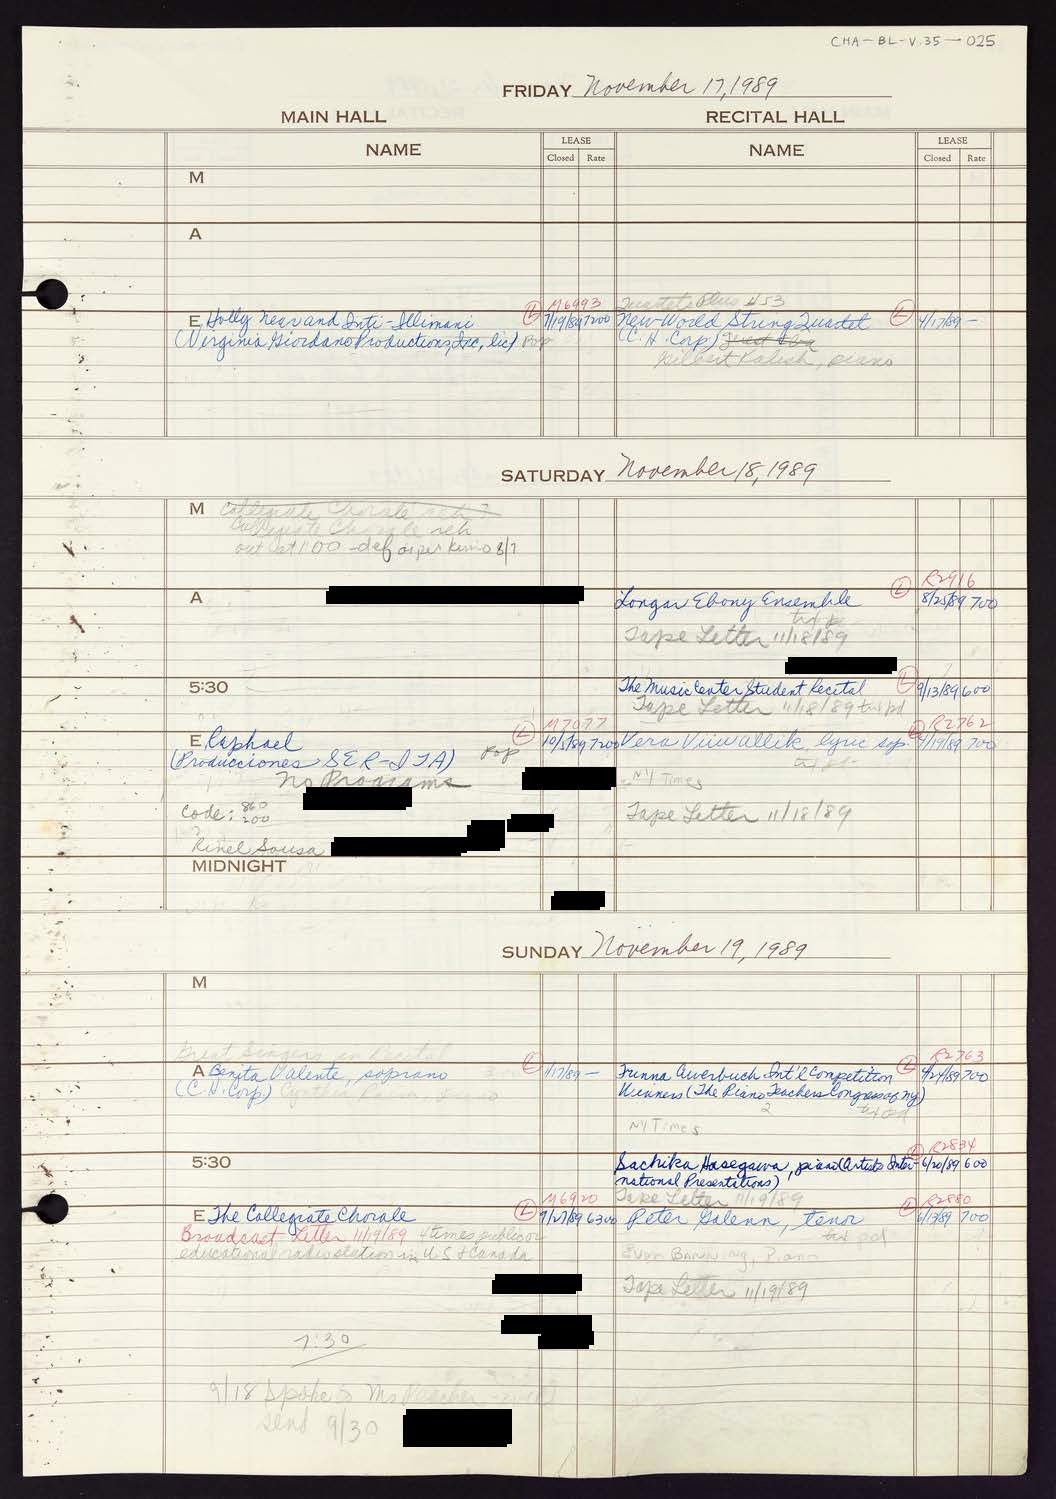 CHA-BL-V.35-025
FRIDAY November 17, 1989
MAIN HALL RECITAL HALL
NAME LEASE NAME LEASE
Closed Rate Closed Rate
M
A
M6993 Quartets Plus 453
E Holly Near and Inti-Illimani L 7/19/89 7200 New World String Quartet L 4/17/89 -
(Virginia Giordano Productions, Inc, lic) Pop (C.H. Corp)
Gilbert Kalish, piano
SATURDAY November 18, 1989
M Collegiate Chorale reh ?
Collegiate Chorale reh
out at 1:00 - def as per 8/7
R2916
A Longar Ebony Ensemble L 8/25/89 700
Tape Letter 11/18/89
5:30 The Music Center Student Recital L 9/13/89 600
Tape Letter 11/18/89
M7077 R2762
E Raphael L 10/5/89 7200 Vera lyric sop. L 4/19/89 700
(Producciones SER-ITA) Pop
No Programs NY Times
Code: 860
200 Tape Letter 11/18/89
Rinel Sousa
MIDNIGHT
SUNDAY November 19, 1989
M
Great Singers in Recital R2763
A Benita Valente, soprano L 1/17/89 - Frinna Awerbuch Int'l Competition L 4/21/89 700
(C.H. Corp.) Winners (The Piano Teachers Congress of NY)
2
NY Times
R2834
5:30 Sachika Hasegawa, piano (Artists Inter- 6/20/89 600
national Presentations)
M6920 Tape Letter 11/19/89 R2880
E The Collegiate Chorale L 9/27/89 6300 Peter Galenn, tenor L 6/13/89 700
Broadcast Letter 11/19/89 4 times public or txt pd
educational radio station in U.S & Canada Evan Banning, Piano
Tape Letter 11/19/89
7:30
9/18 Spoke
send 9/30